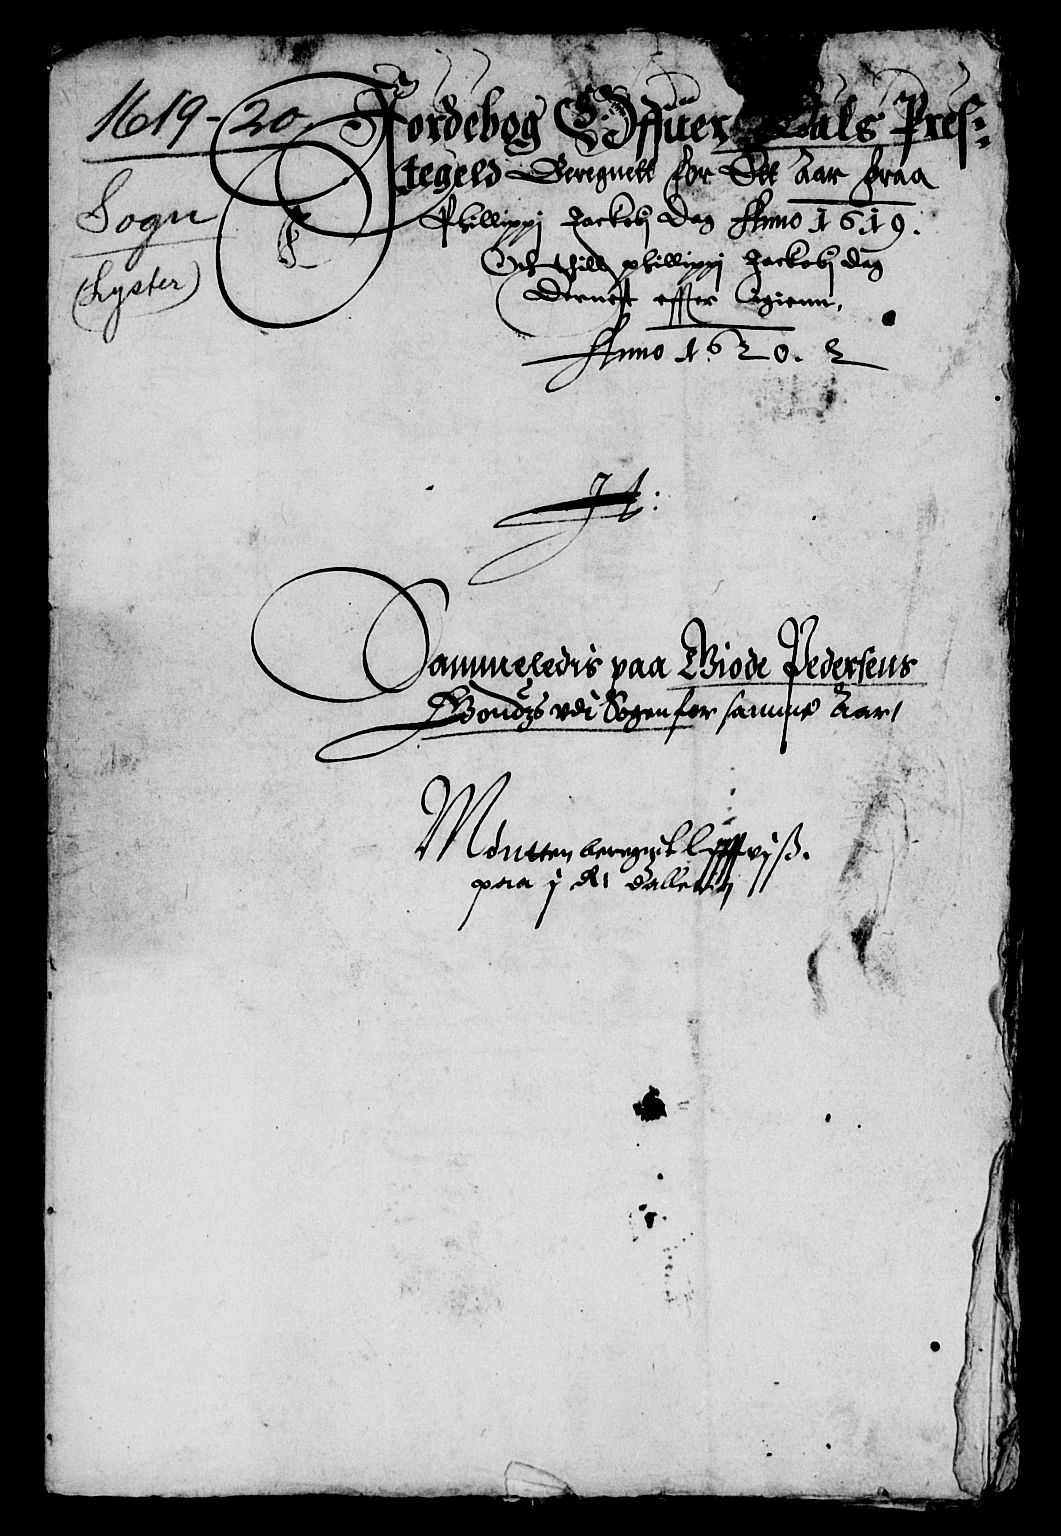 1619-20
Sogn
(Lyster)
Jordebog Offuer Dals Pres-
tegeld Beregnett for Ett Aar fraa
Phillippj Jackobj Dag Anno 1619.
Och thill phillippj Jackobj dag
Dernest effter Igienn.
Anno 1620.
It:
Sammeledis paa Giøde Pedersens
Gondz vdi Sogen for samme Aar
Møntten beregnit
paa j Rt Daller